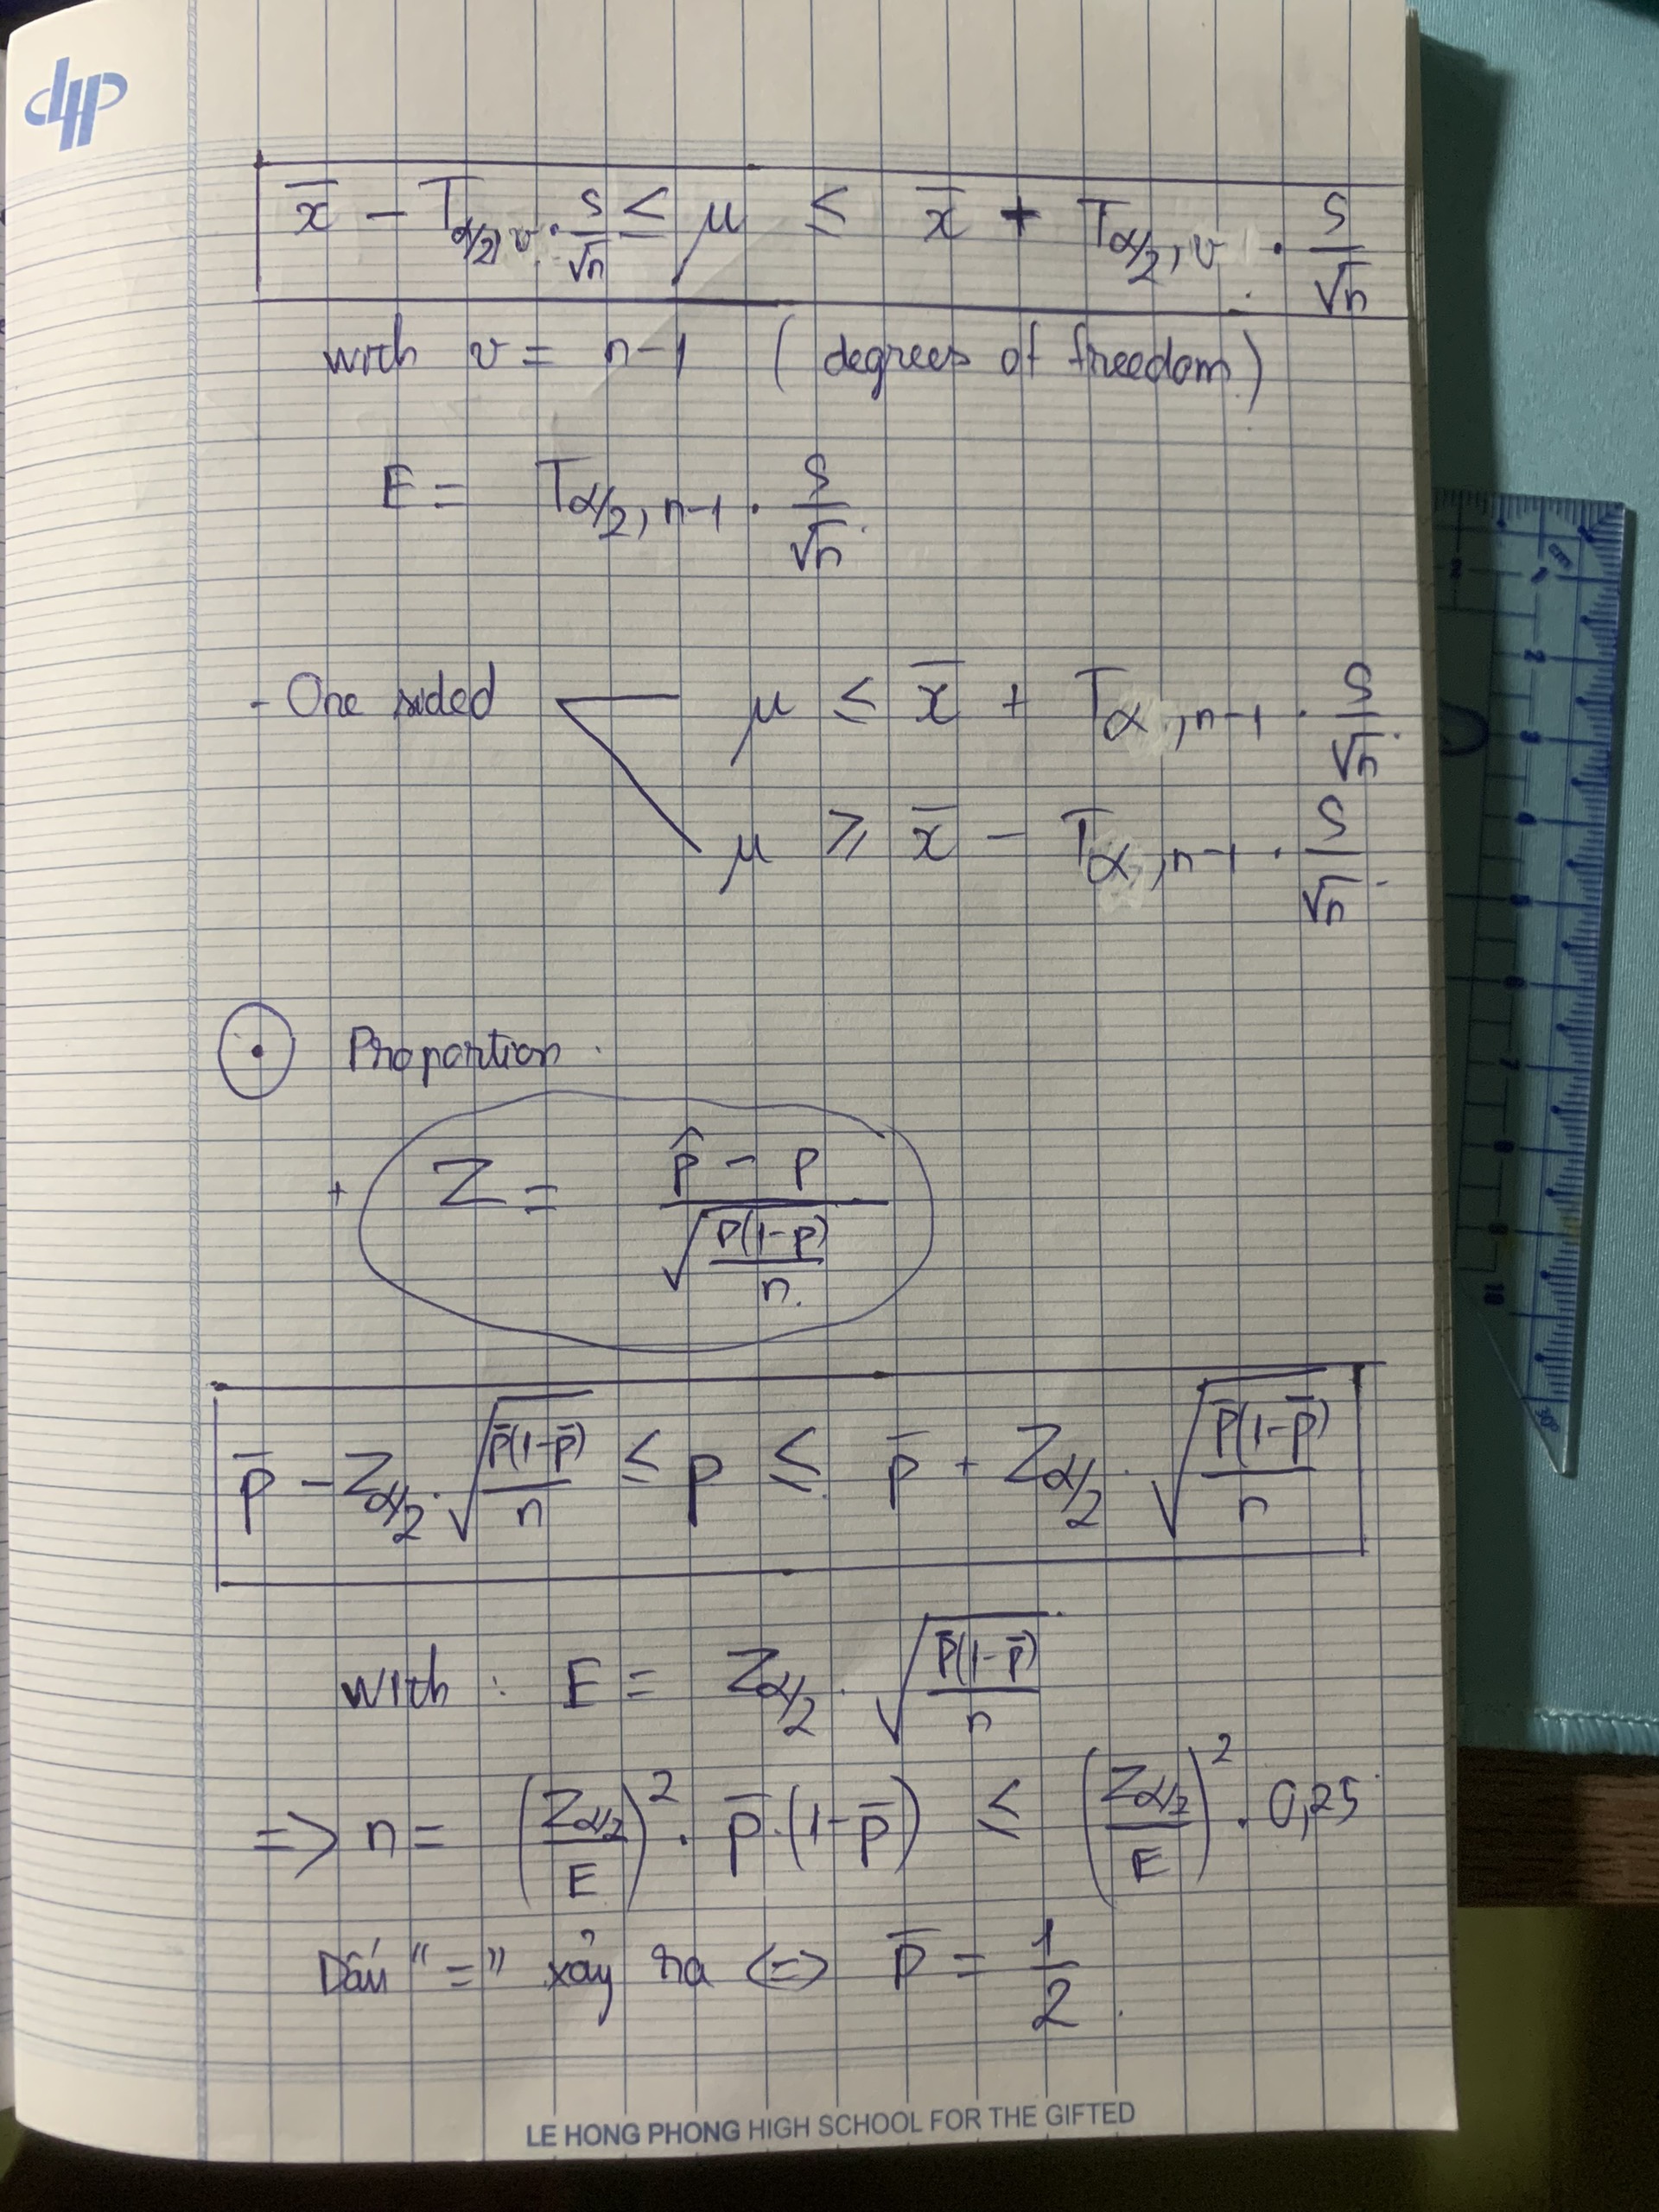 LHP
x̄ − T_{α/2, v} · S/√n ≤ μ ≤ x̄ + T_{α/2, v} · S/√n
with v = n−1 (degrees of freedom)
E = T_{α/2, n−1} · S/√n
- One sided
μ ≤ x̄ + T_{α, n−1} · S/√n
μ ≥ x̄ − T_{α, n−1} · S/√n
⊙ Proportion.
+ Z = (p̂ − p) / √(p(1−p)/n)
p̄ − Z_{α/2} · √(p̄(1−p̄)/n) ≤ p ≤ p̄ + Z_{α/2} · √(p̄(1−p̄)/n)
with : E = Z_{α/2} · √(p̄(1−p̄)/n)
=> n = (Z_{α/2}/E)² · p̄ · (1−p̄) ≤ (Z_{α/2}/E)² · 0,25
Dấu "=" xảy ra <=> p̄ = 1/2.
LE HONG PHONG HIGH SCHOOL FOR THE GIFTED
1
2
3
4
5
6
7
8
9
10